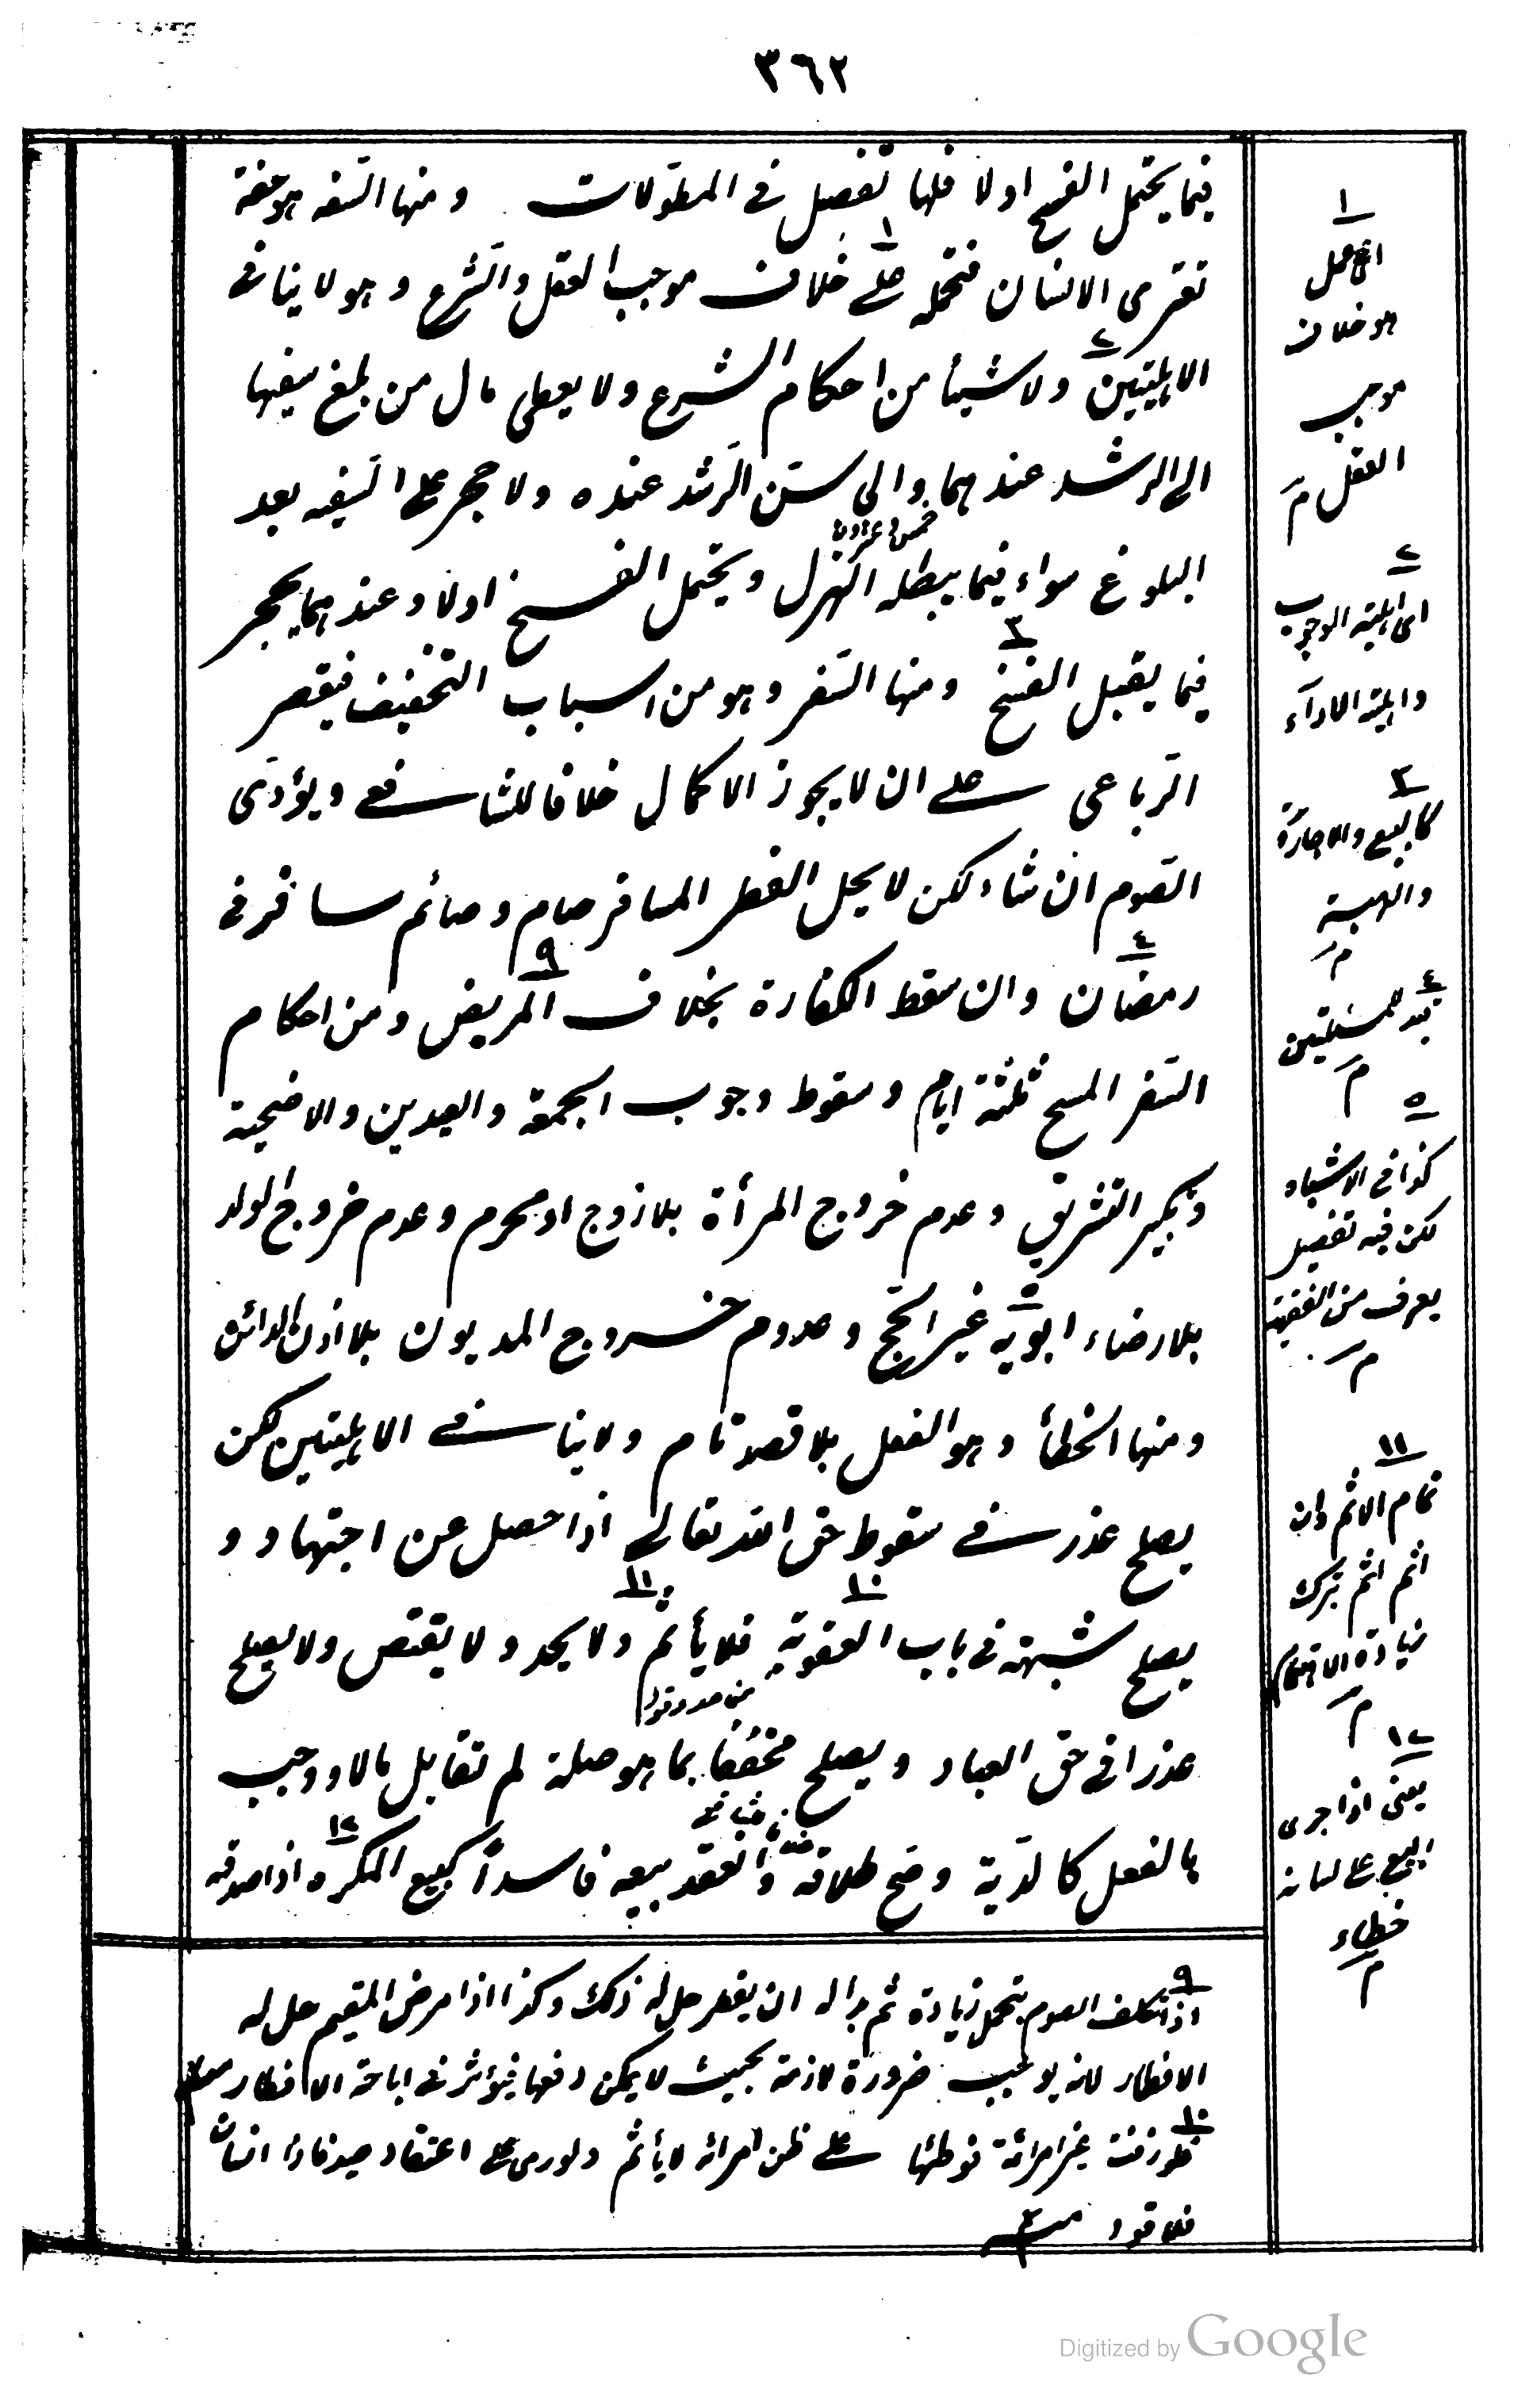 ٣٦٢
فيما يحتمل الفسخ اولا فلها تفصيل فى المطولات ومنها السفه هو خفة
تعترى الانسان فتحمله على خلاف موجب العقل والشرع وهو لا ينافى
الاهليتين ولا شيئا من احكام الشرع ولا يعطى مال من بلغ سفيها
الى الرشد عندهما والى سن الرشد عنده ولا حجر على السفيه بعد
خمس وعشرون
البلوغ سواء فيما يبطله الهزل ويحتمل الفسخ اولا وعندهما يحجر
فيما يقبل الفسخ ومنها السفر وهو من اسباب التخفيف فيقصر
الرباعى على ان لا يجوز الاكمال خلافا للشافعى ويؤدى
الصوم ان شاء لكن لا يحل الفطر المسافر صام وصائم سافر فى
رمضان وان سقط الكفارة بخلاف المريض ومن احكام
السفر المسح ثلثة ايام وسقوط وجوب الجمعة والعيدين والاضحية
وتكبير التشريق وعدم خروج المرأة بلا زوج او محرم وعدم خروج الولد
بلا رضاء ابويه غير الحج وعدم خروج المديون بلا اذن الدائن
ومنها الخطأ وهو الفعل بلا قصد تام ولا ينافى الاهليتين لكن
يصلح عذر فى سقوط حق الله تعالى اذا حصل عن اجتهاد و
يصلح شبهة فى باب العقوبة فلا يأثم ولا يحد ولا يقتص ولا يصلح
عذرا فى حق العباد ويصلح مخففا بما هو صلة لم تقابل مالا ووجب
بالفعل كالدية وصح طلاقه وانعقد بيعه فاسدا كبيع المكره اذا صدقه
١
اى عمل
هو خلاف
موجب
العقل م
٢
اى اهلية الوجوب
واهلية الاداء
٣
كالبيع والاجارة
والهبة
م
٤
قيد للمسئلتين
م
٥
كذا فى الاشباه
لكن فيه تفصيل
يعرف من الفقهية
م
١١
تمام الاثم وان
اثم اثم ترك
زيادة الاهتمام
م
١٢
يعنى اذا جرى
البيع على لسانه
خطاء
م
٩
اذا تكلف الصوم بتحمل زيادة ثم بدا له ان يفطر حل له ذلك وكذا اذا مرض المقيم حل له
الافطار لانه يوجب ضرورة لازمة بحيث لا يمكن دفعها فيؤثر فى اباحة الافطار
١٠
فلو زفت غير امرأته فوطئها على ظن امرأته لا يأثم ولو رمى على اعتقاد صيد فاذا انسان
فلا قود
Digitized by Google